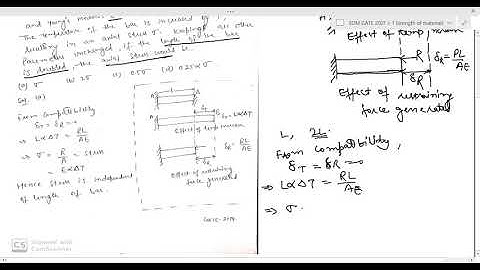 and Young's modulus
The temperature of the bar is increased by
resulting in an axial stress σ. Keeping all other
Parameters unchanged, if the length of the bar
is doubled, the axial stress would be
(a) σ (b) 2σ (c) 0.5σ (d) 0.25 σ
Sol. (a)
From compatibility
δT = δR
⇒ LαΔT = RL/AE
⇒ σ = R/A = stress
= EαΔT
Hence stress is independent
of length of bar.
L
A
A
= LαΔT
Effect of temp increase
δR = RL/AE
Effect of restraining
force generated
GATE-2014
CS
Scanned with
CamScanner
SOM GATE 2021
Strength of material
Effect of temp increase
R
δR
δR = PL/AE
Effect of restraining
force generated
L, 2L
From compatibility,
δT = δR
⇒ LαΔT = RL/AE
⇒ σ